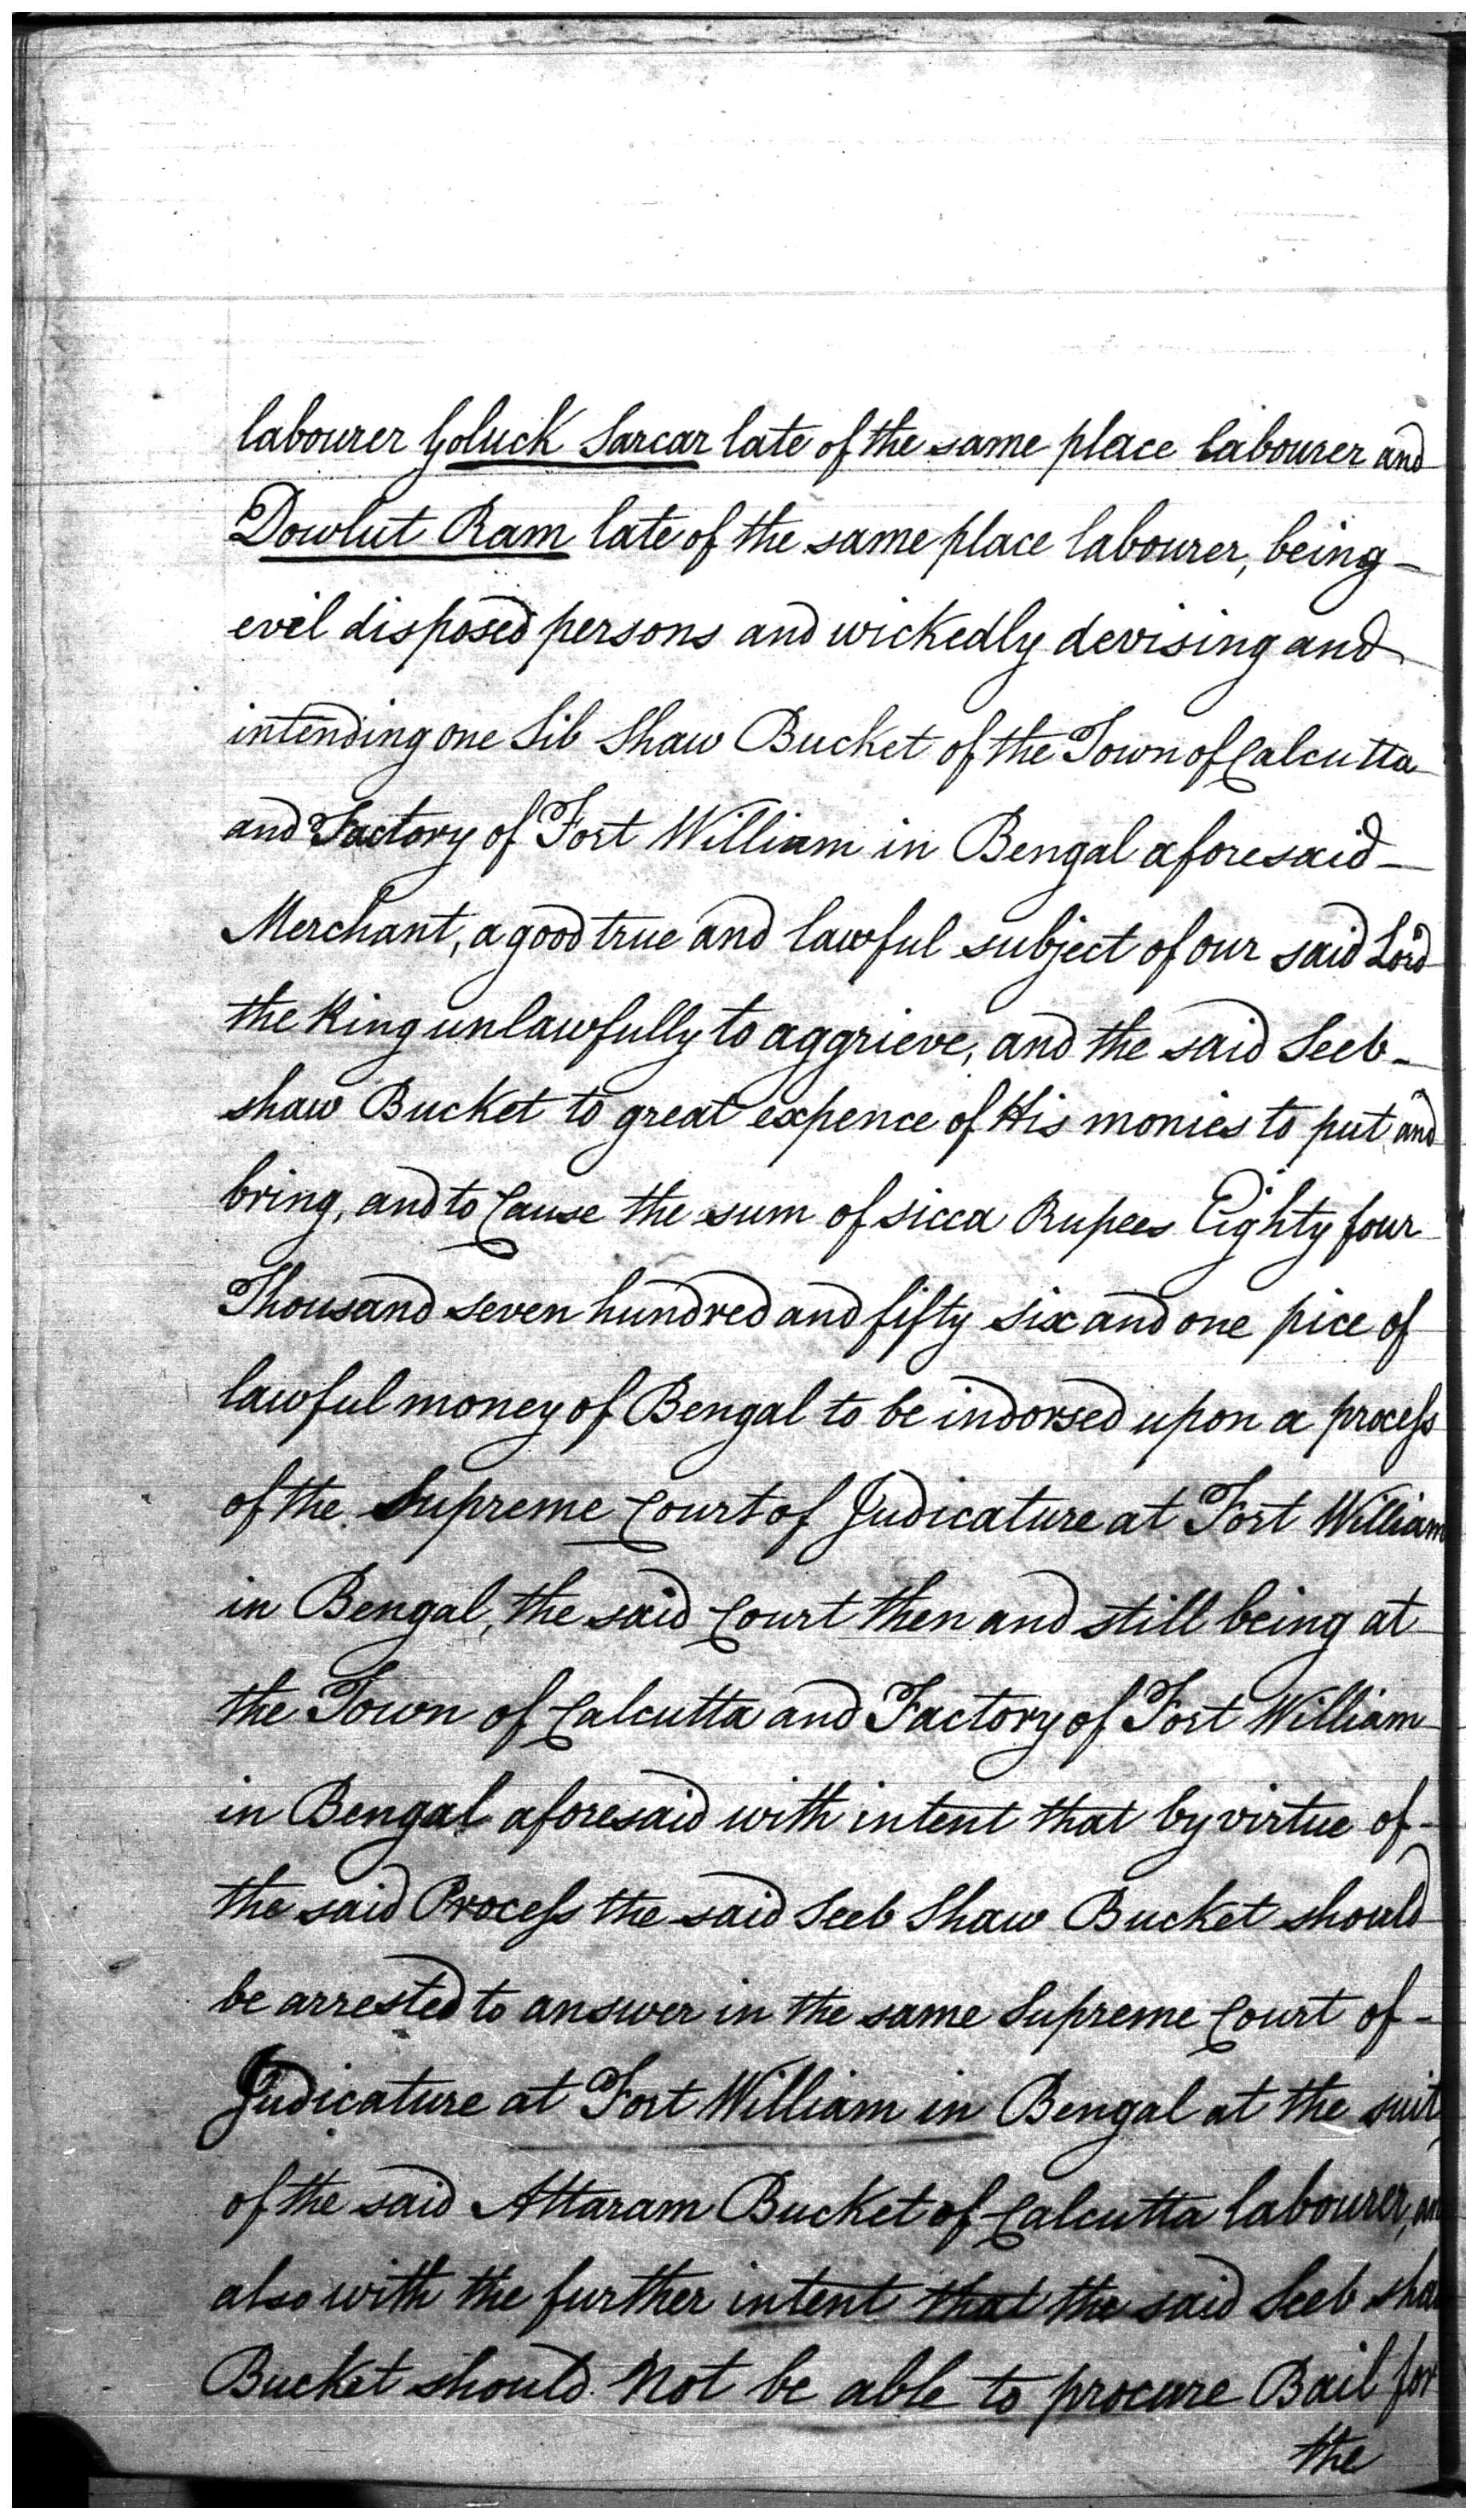 labourer Goluck Sarcar late of the same place labourer and
Dowlut Ram late of the same place labourer, being -
evil disposed persons and wickedly devising and
intending one Sib Shaw Bucket of the Town of Calcutta
and Factory of Fort William in Bengal aforesaid -
Merchant, a good true and lawful subject of our said Lord
the King unlawfully to aggrieve, and the said Seeb -
shaw Bucket to great expence of His monies to put and
bring, and to Cause the sum of sicca Rupees Eighty four
Thousand seven hundred and fifty six and one pice of
lawful money of Bengal to be indorsed upon a process
of the Supreme Court of Judicature at Fort William
in Bengal, the said Court then and still being at
the Town of Calcutta and Factory of Fort William
in Bengal aforesaid with intent that by virtue of -
the said Process the said Seeb Shaw Bucket should
be arrested to answer in the same Supreme Court of -
Judicature at Fort William in Bengal at the suit
of the said Attaram Bucket of Calcutta labourer, an
also with the further intent that the said Seeb sha
Bucket should Not be able to procure Bail for
the